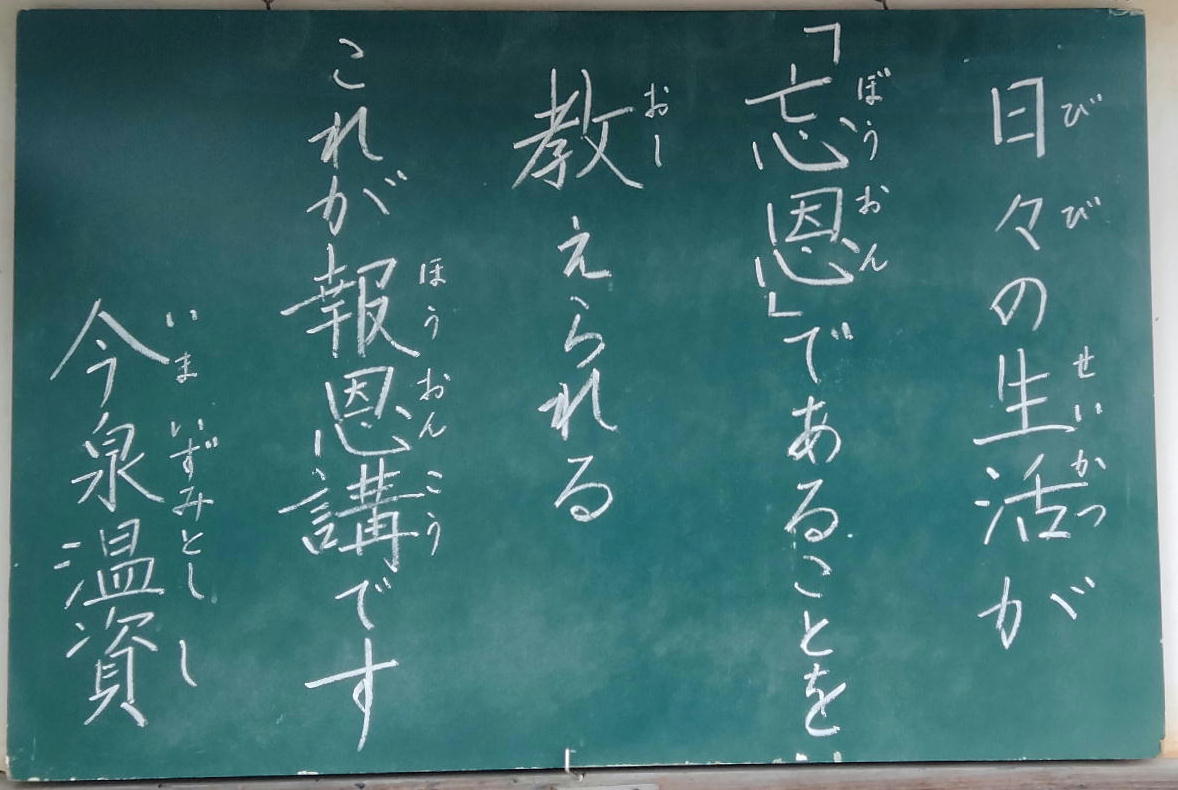 日々の生活が
びび せいかつ
「忘恩」であることを
ぼうおん
教えられる
おー
これが報恩講です
ほうおんこう
今泉温資
いまいずみとしし